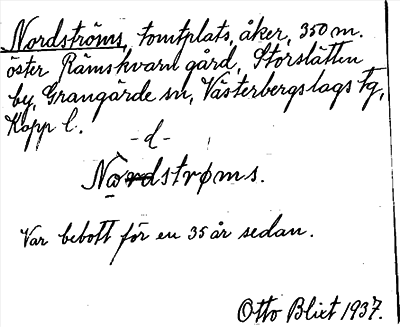 Nordströms, tomtplats, åker, 350 m.
öster Rämshvarn gård, Storslätten
by, Grangärde sn, Västerbergslags fg,
Kopp l.
-d-
Nordstrøms.
Var bebott för en 35 år sedan.
Otto Blixt 1937.